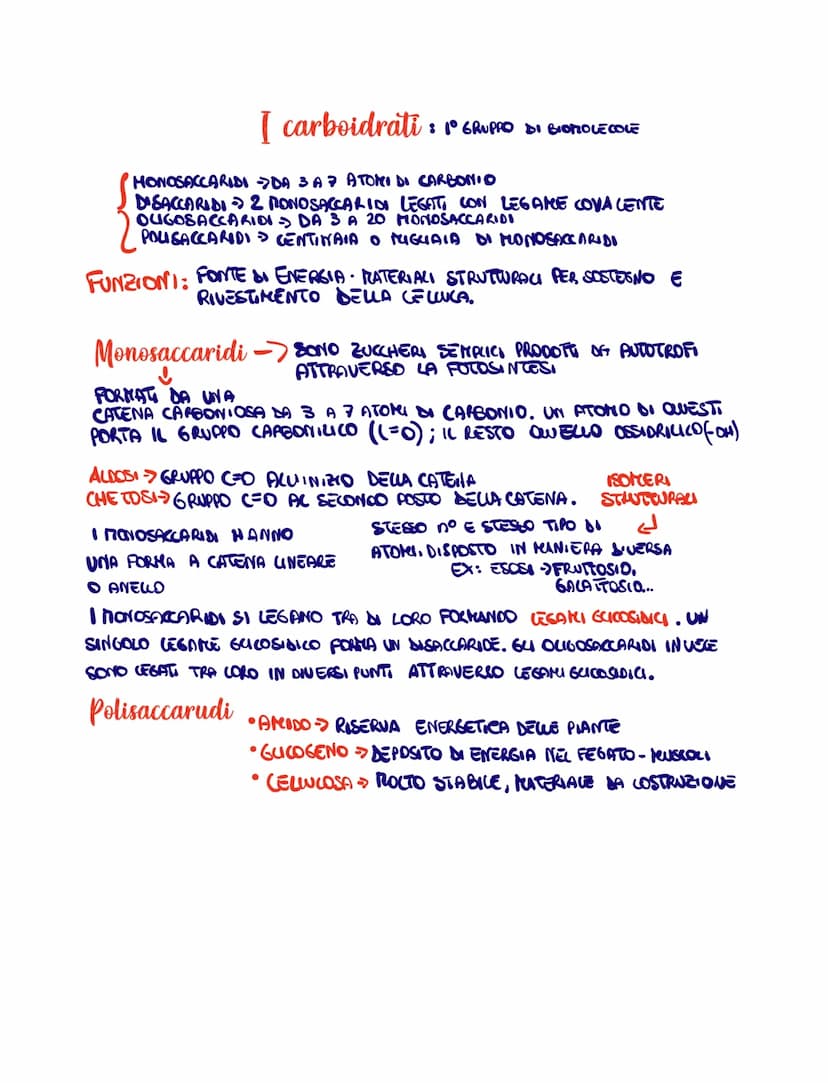 I carboidrati : 1° GRUPPO DI BIOMOLECOLE
MONOSACCARIDI → DA 3 A 7 ATOMI DI CARBONIO
DISACCARIDI → 2 MONOSACCARIDI LEGATI CON LEGAME COVALENTE
OLIGOSACCARIDI → DA 3 A 20 MONOSACCARIDI
POLISACCARIDI → CENTINAIA O MIGLIAIA DI MONOSACCARIDI
FUNZIONI: FONTE DI ENERGIA · MATERIALI STRUTTURALI PER SOSTEGNO E
RIVESTIMENTO DELLA CELLULA.
Monosaccaridi → SONO ZUCCHERI SEMPLICI PRODOTTI DA AUTOTROFI
ATTRAVERSO LA FOTOSINTESI
↓
FORMATI DA UNA
CATENA CARBONIOSA DA 3 A 7 ATOMI DI CARBONIO. UN ATOMO DI QUESTI
PORTA IL GRUPPO CARBONILICO (C=O); IL RESTO QUELLO OSSIDRILICO (-OH)
ALDOSI → GRUPPO C=O ALL'INIZIO DELLA CATENA
CHETOSI → GRUPPO C=O AL SECONDO POSTO DELLA CATENA.
ISOMERI
STRUTTURALI
↓
STESSO n° E STESSO TIPO DI
ATOMI, DISPOSTO IN MANIERA DIVERSA
EX: ESOSI → FRUTTOSIO,
GALATTOSIO...
I MONOSACCARIDI HANNO
UNA FORMA A CATENA LINEARE
O ANELLO
I MONOSACCARIDI SI LEGANO TRA DI LORO FORMANDO LEGAMI GLICOSIDICI. UN
SINGOLO LEGAME GLICOSIDICO FORMA UN DISACCARIDE. GLI OLIGOSACCARIDI INVECE
SONO LEGATI TRA LORO IN DIVERSI PUNTI ATTRAVERSO LEGAMI GLICOSIDICI.
Polisaccarudi
• AMIDO → RISERVA ENERGETICA DELLE PIANTE
• GLICOGENO → DEPOSITO DI ENERGIA NEL FEGATO - MUSCOLI
• CELLULOSA → MOLTO STABILE, MATERIALE DA COSTRUZIONE